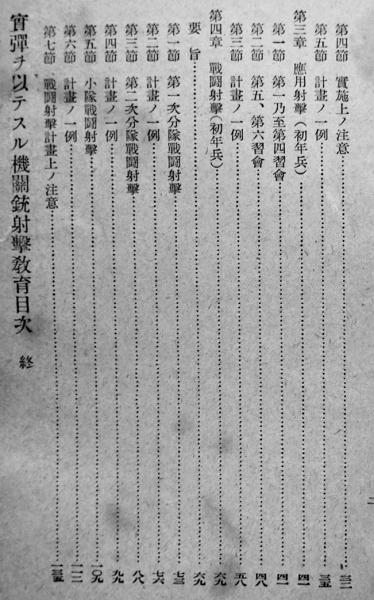 第四節　實施上ノ注意……三二
第五節　計畫ノ一例……三五
第三章　應用射擊（初年兵）……四一
第一節　第一乃至第四習會……四一
第二節　第五、第六習會……四八
第三節　計畫ノ一例……五八
第四章　戰鬪射擊（初年兵）……六九
要旨……六九
第一節　第一次分隊戰鬪射擊……七三
第二節　計畫ノ一例……七六
第三節　第二次分隊戰鬪射擊……八八
第四節　計畫ノ一例……九九
第五節　小隊戰鬪射擊……一〇九
第六節　計畫ノ一例……一一三
第七節　戰鬪射擊計畫上ノ注意……一三五
實彈ヲ以テスル機關銃射擊敎育目次　終